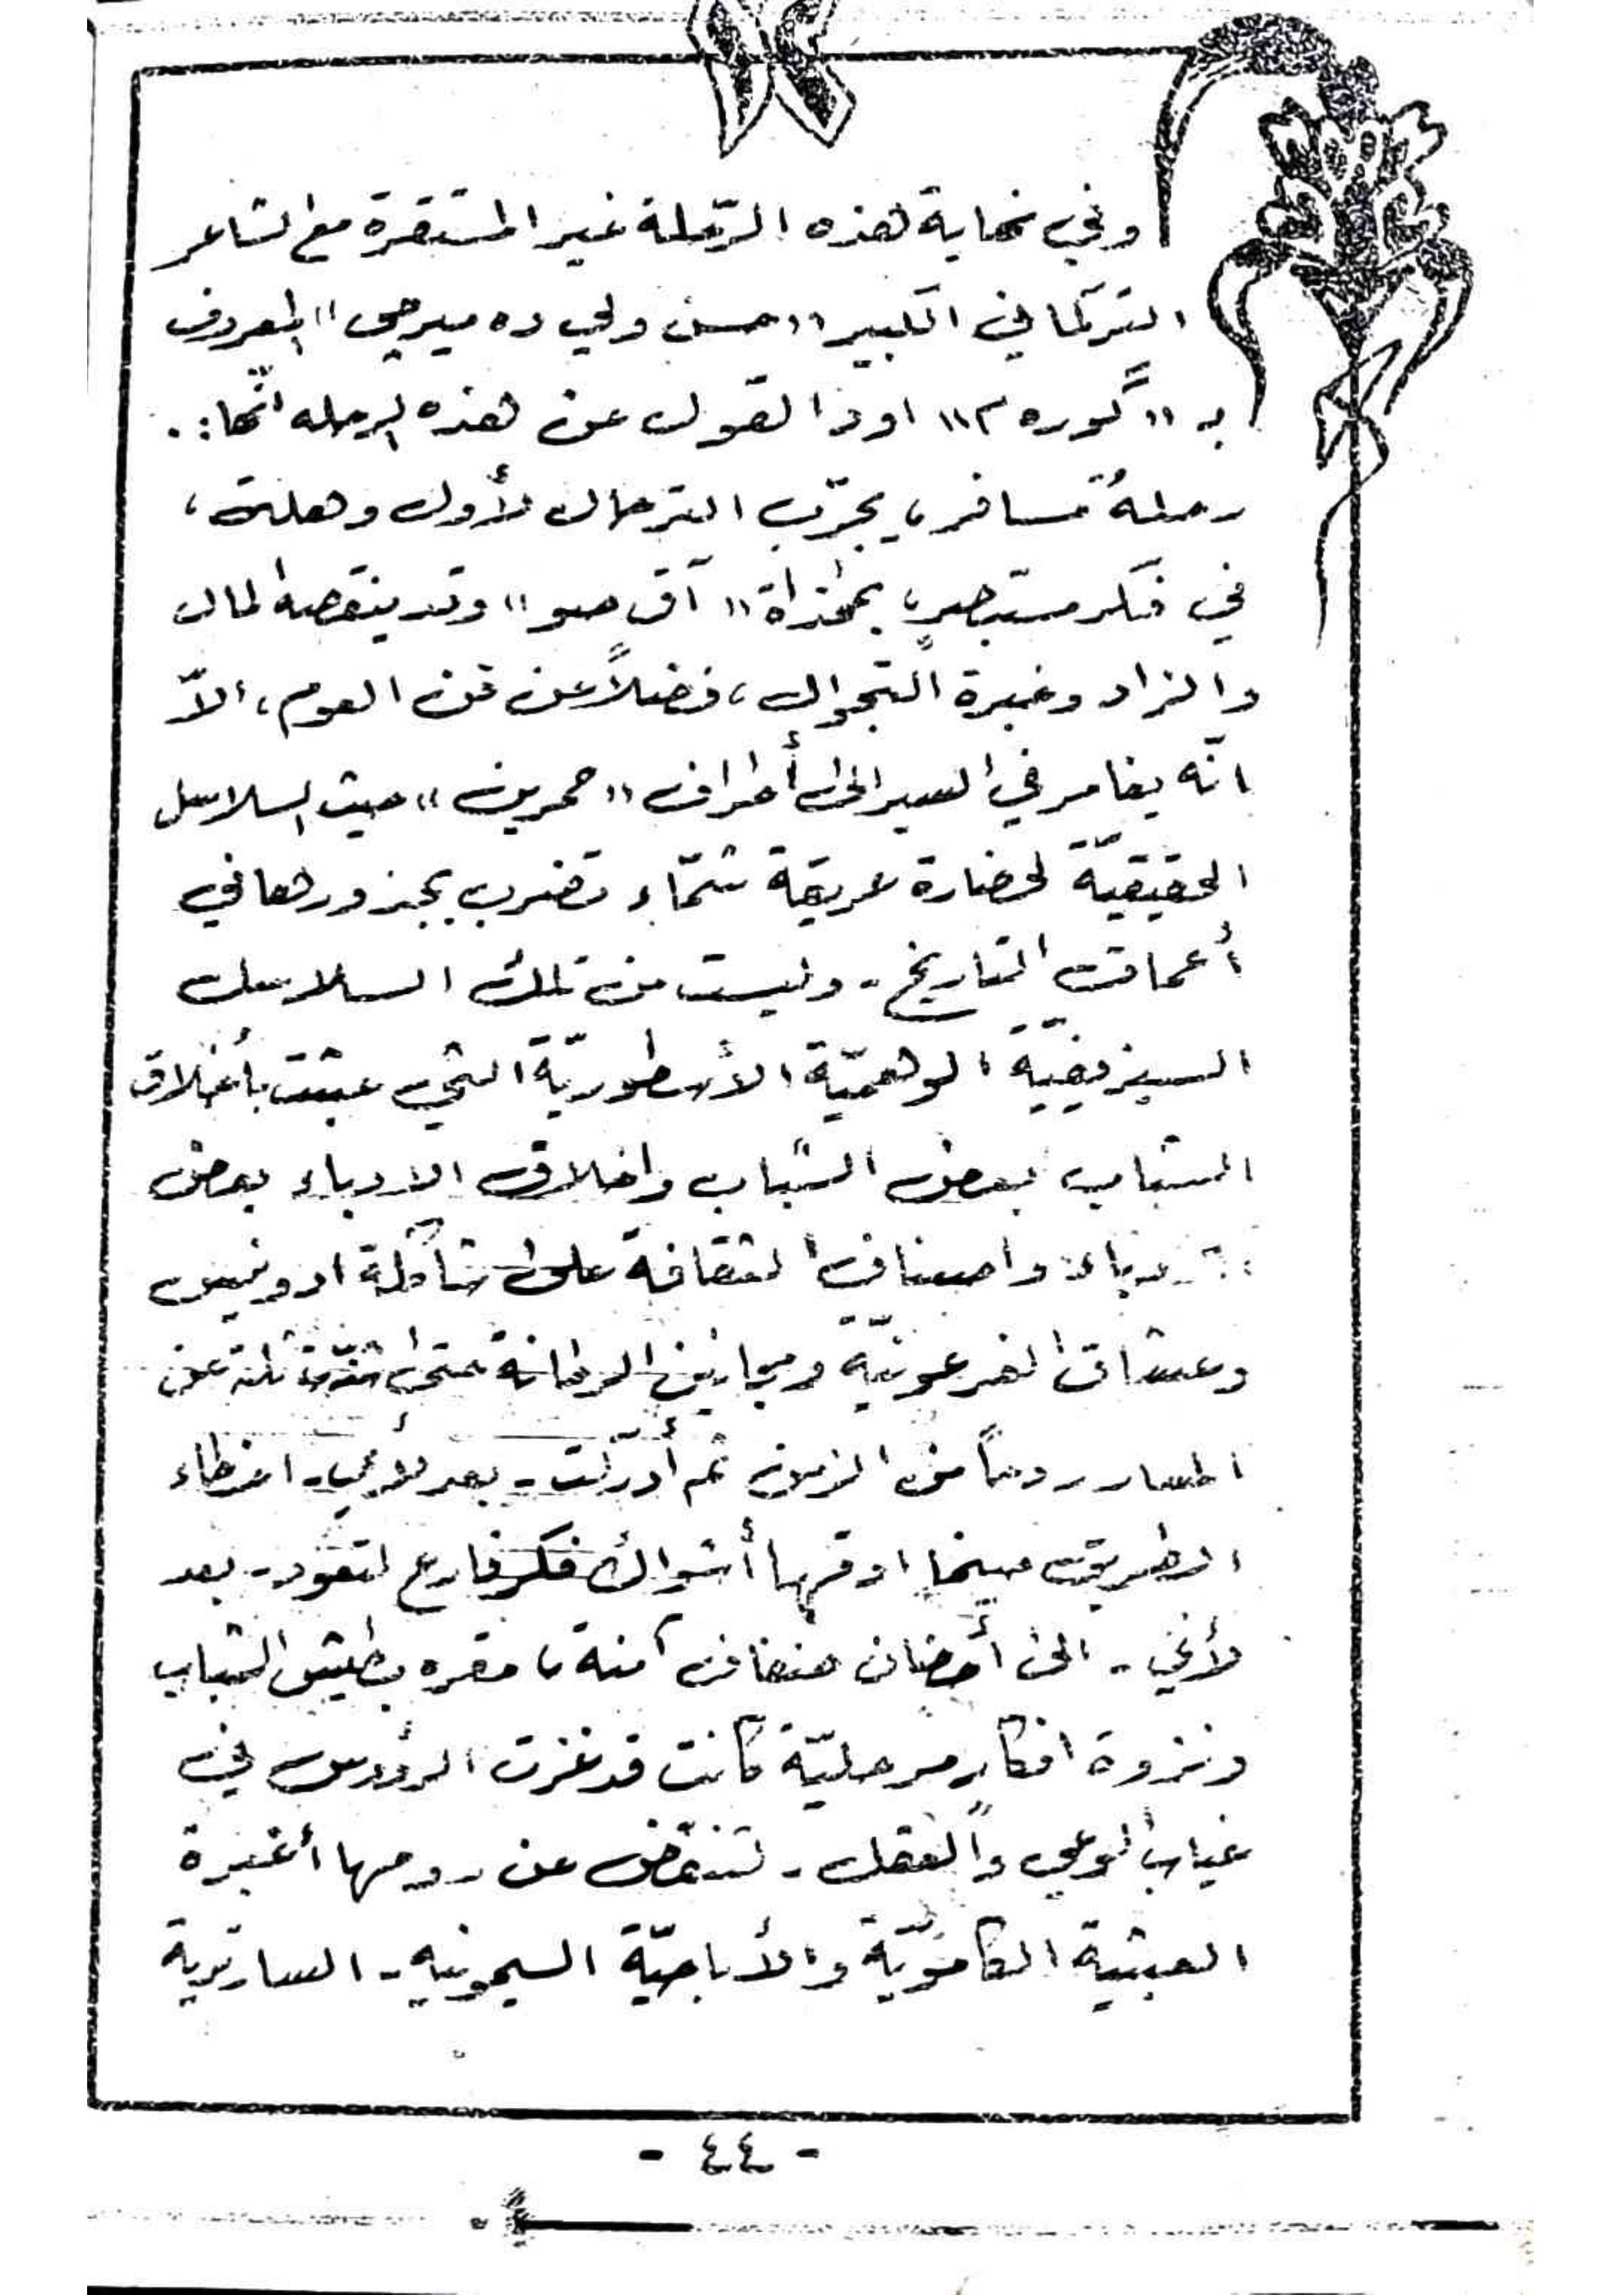 وفي نهاية هذه الرّحلة غير المستقرة مع الشاعر
التركماني الكبير «حسن ولي ده ميرجي» المعروف
بـ «گوره م» اودّ القول عن هذه الرحله انّها:.
رحلةُ مسافر، يجرّب الترحال لأول وهلة،
في فكر مستبصرٍ بمحاذاة «آق صو» وقد ينقصه المال
والزاد وخبرة التجوال، فضلاً عن فن العوم، الاّ
انّه يغامر في السير الى أطراف «حمرين» حيث السلاسل
الحقيقيّة لحضارة عريقة شمّاء تضرب بجذورها في
أعماق التاريخ - وليست من تلك السلاسل
السيزيفيّة الوهميّة الأسطوريّة التي عبثت بأخلاق
الشباب بعض الشباب واخلاق الادباء بعض
الادباء واصناف الثقافة على شاكلة ادونيس
وعشاق الفرعونيّة ومجانين الرطانة حتى ثلة عن
المسار ردحاً من الزمن ثم أدركت - بعد لأي - اخطاء
الطريق حينما ارقها أشواك فكر فارع لتعود - بعد
لأي - الى أحضان ضفاف آمنة، مقره بطيش الشباب
ونزوة افكار مرحليّة كانت قد غزت الرؤوس في
غياب الوعي والعقل - لتنفض عن روحها أغبرة
العبثية الكاموّية والأباحيّة السيمونيه - السارترية
- ٤٤ -